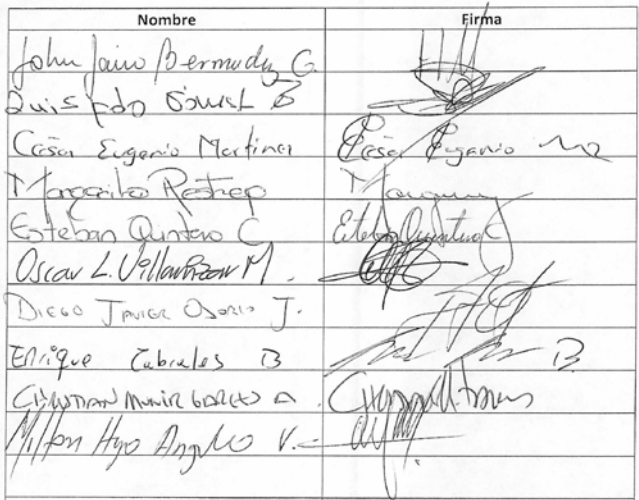 Nombre Firma
John Jairo Bermudez G.
Luis Gómez B
César Eugenio Martinez César Eugenio Mz
Margarita Restrepo
Esteban Quintero C Esteban Quintero C
Oscar L. Villamizar M.
DIEGO JAVIER OSORIO J.
Enrique Cabrales B B.
CHRISTIAN MUNIR GARCES A
Milton Hugo Angulo V.